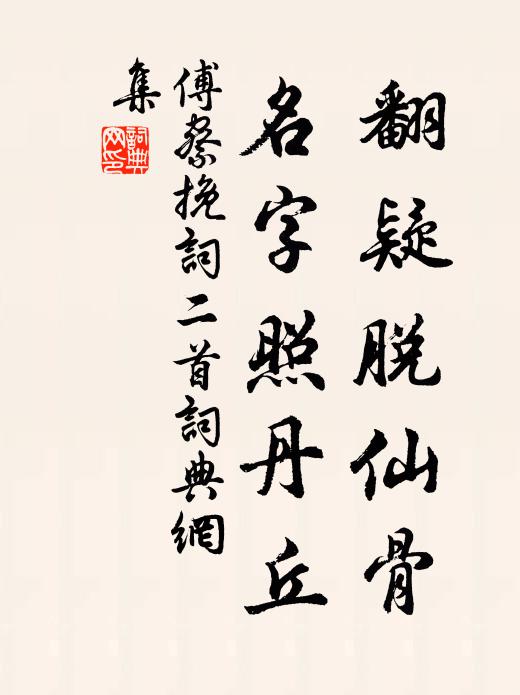 翻疑脱仙骨
名字照丹丘
傅察挽詞二首詞典網
集
詞典
网印